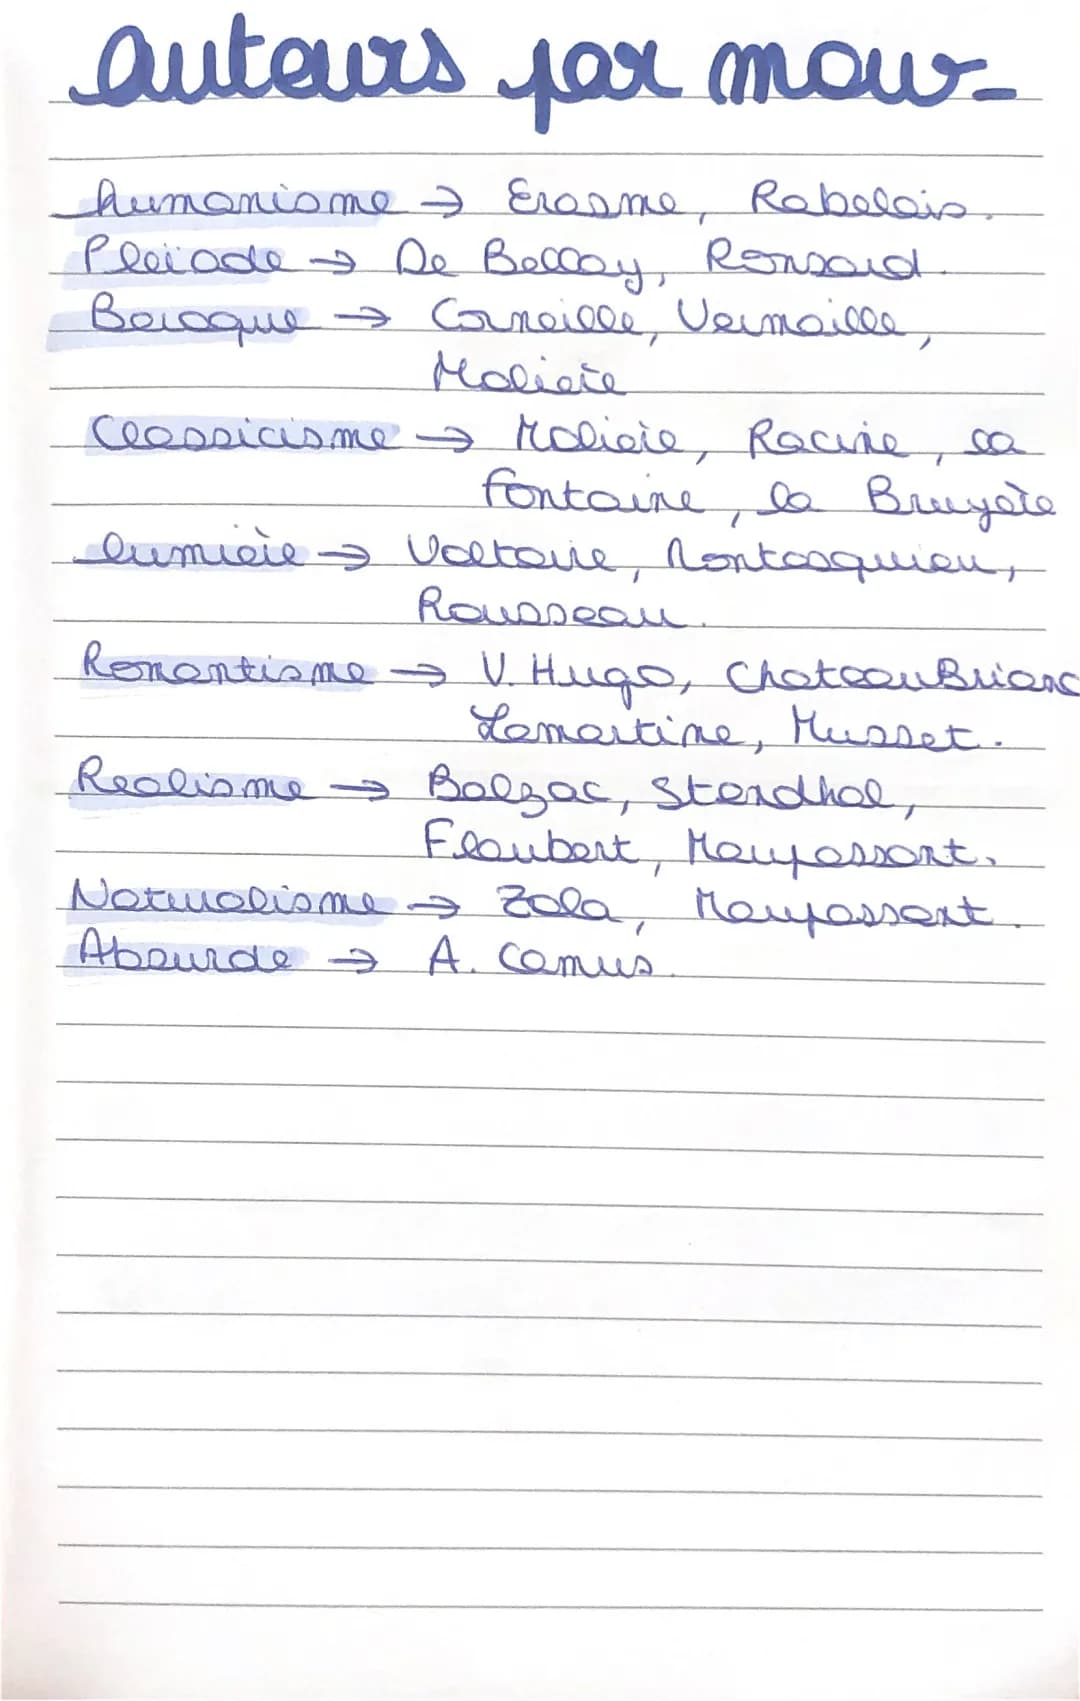 auteurs par mouv-
humanisme → Erasme, Rabelais.
Pleiade → De Bellay, Ronsard.
Baroque → Corneille, Vermeille,
Molière
Classicisme → Molière, Racine, La
fontaine, la Bruyère
lumière → Voltaire, Montesquieu,
Rousseau.
Romantisme → V. Hugo, ChateauBrian
Lamartine, Musset.
Realisme → Balzac, Stendhal,
Flaubert, Maupassant.
Naturalisme → Zola, Maupassant.
Absurde → A. Camus.